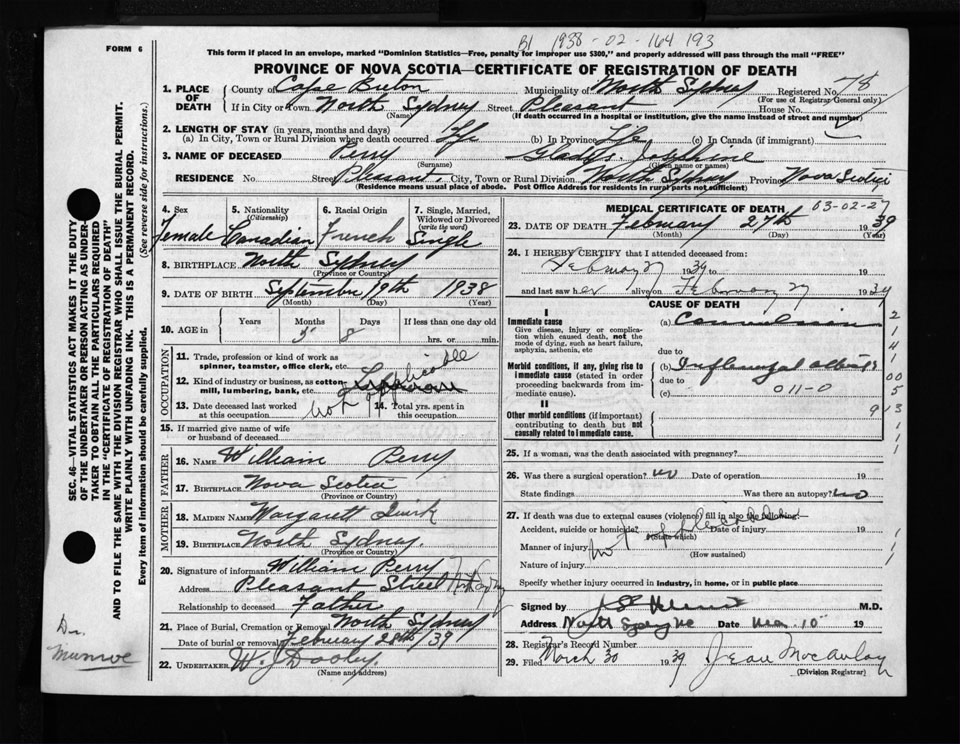 B1 1938-02-164 193
FORM 6
This form if placed in an envelope, marked "Dominion Statistics—Free, penalty for improper use $300," and properly addressed will pass through the mail "FREE"
PROVINCE OF NOVA SCOTIA—CERTIFICATE OF REGISTRATION OF DEATH
1. PLACE OF DEATH County of Cape Breton Municipality of North Sydney Registered No. 78
(For use of Registrar General only)
If in City or Town North Sydney Street Pleasant House No.
(Name) (If death occurred in a hospital or institution, give the name instead of street and number)
2. LENGTH OF STAY (in years, months and days)
(a) In City, Town or Rural Division where death occurred Life (b) In Province Life (c) In Canada (if immigrant)
3. NAME OF DECEASED Perry Gladys Josephine
(Surname) (Given name or names)
RESIDENCE No. Street Pleasant City, Town or Rural Division North Sydney Province Nova Scotia
(Residence means usual place of abode. Post Office Address for residents in rural parts not sufficient)
4. Sex 5. Nationality (Citizenship) 6. Racial Origin 7. Single, Married, Widowed or Divorced (write the word)
Female Canadian French Single
8. BIRTHPLACE North Sydney
(Province or Country)
9. DATE OF BIRTH September 19th 1938
(Month) (Day) (Year)
10. AGE in Years Months Days If less than one day old
5 8 hrs. or min.
OCCUPATION
11. Trade, profession or kind of work as spinner, teamster, office clerk, etc.
12. Kind of industry or business, as cotton mill, lumbering, bank, etc.
13. Date deceased last worked at this occupation 14. Total yrs. spent in this occupation
not applicable
15. If married give name of wife or husband of deceased
FATHER
16. NAME William Perry
17. BIRTHPLACE Nova Scotia
(Province or Country)
MOTHER
18. MAIDEN NAME Margarett Quirk
19. BIRTHPLACE North Sydney.
(Province or Country)
20. Signature of informant William Perry
Address Pleasant Street Nth Sydney
Relationship to deceased Father
21. Place of Burial, Cremation or Removal North Sydney
Date of burial or removal February 28th/39
22. UNDERTAKER W. J. Dooley.
(Name and address)
MEDICAL CERTIFICATE OF DEATH 63-02-27
23. DATE OF DEATH February 27th 1939
(Month) (Day) (Year)
24. I HEREBY CERTIFY that I attended deceased from:
February 27 1939 to
and last saw her alive on February 27 1939
CAUSE OF DEATH
I
Immediate cause (a) Convulsion
Give disease, injury or complication which caused death, not the mode of dying, such as heart failure, asphyxia, asthenia, etc
due to
Morbid conditions, if any, giving rise to immediate cause (stated in order proceeding backwards from immediate cause).
(b) Influenzal
due to 011-0
(c)
II
Other morbid conditions (if important) contributing to death but not causally related to immediate cause.
25. If a woman, was the death associated with pregnancy?
26. Was there a surgical operation? no Date of operation 19
State findings Was there an autopsy? no
27. If death was due to external causes (violence) fill in also the following:
Accident, suicide or homicide? Date of injury 19
(State which)
Manner of injury not applicable
(How sustained)
Nature of injury
Specify whether injury occurred in industry, in home, or in public place
Signed by M.D.
Address North Sydney NS Date Mar. 10 19
28. Registrar's Record Number
29. Filed March 30 1939 Jean MacAulay
(Division Registrar)
SEC. 46—VITAL STATISTICS ACT MAKES IT THE DUTY OF THE UNDERTAKER OR PERSON ACTING AS UNDERTAKER TO OBTAIN ALL THE PARTICULARS REQUIRED IN THE "CERTIFICATE OF REGISTRATION OF DEATH" AND TO FILE THE SAME WITH THE DIVISION REGISTRAR WHO SHALL ISSUE THE BURIAL PERMIT.
WRITE PLAINLY WITH UNFADING INK. THIS IS A PERMANENT RECORD.
Every item of information should be carefully supplied. (See reverse side for instructions.)
Dr. Munroe